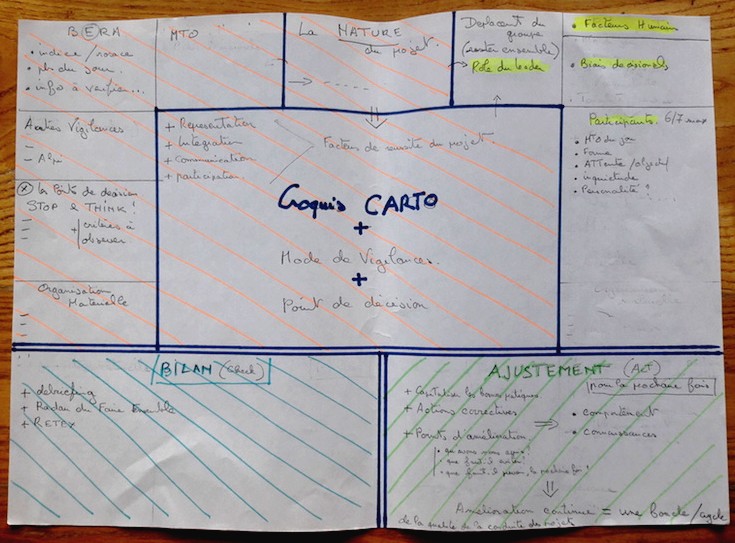 BERA
• indice / rosace
• phr du jour.
• info à vérifier...
MTO
La NATURE
du projet.
Déplacement du
groupe
(rester ensemble)
Rôle du leader
• Facteurs Humains
• Biais décisionels
Autres Vigilances
-
- Alpi
+ Représentation
+ Intégration
+ Communication
+ participation
Facteurs de réussite du projet.
Participants. 6/7 maxi
• MTO du jour
• Forme
• ATTente / objectif
• inquiétude
• Personalité ? ...
(x) les Points de décision
STOP & THINK !
+ critères à
observer
Croquis CARTO
+
Mode de Vigilances.
+
Point de décision
Organisation
Matérielle
BILAN (Check)
+ débriefing
+ Radar du Faire Ensemble
+ RETEX
AJUSTEMENT (ACT)
pour la prochaine fois
+ Capitaliser les bonnes pratiques
+ Actions correctives
+ Points d'amélioration
• que avons nous appris ?
• que faut-il éviter ?
• que faut-il prévoir, la prochaine fois ?
⇒
• comportement
• connaissances
⇓
Amélioration continue = une boucle / cycle
de la conduite des projets